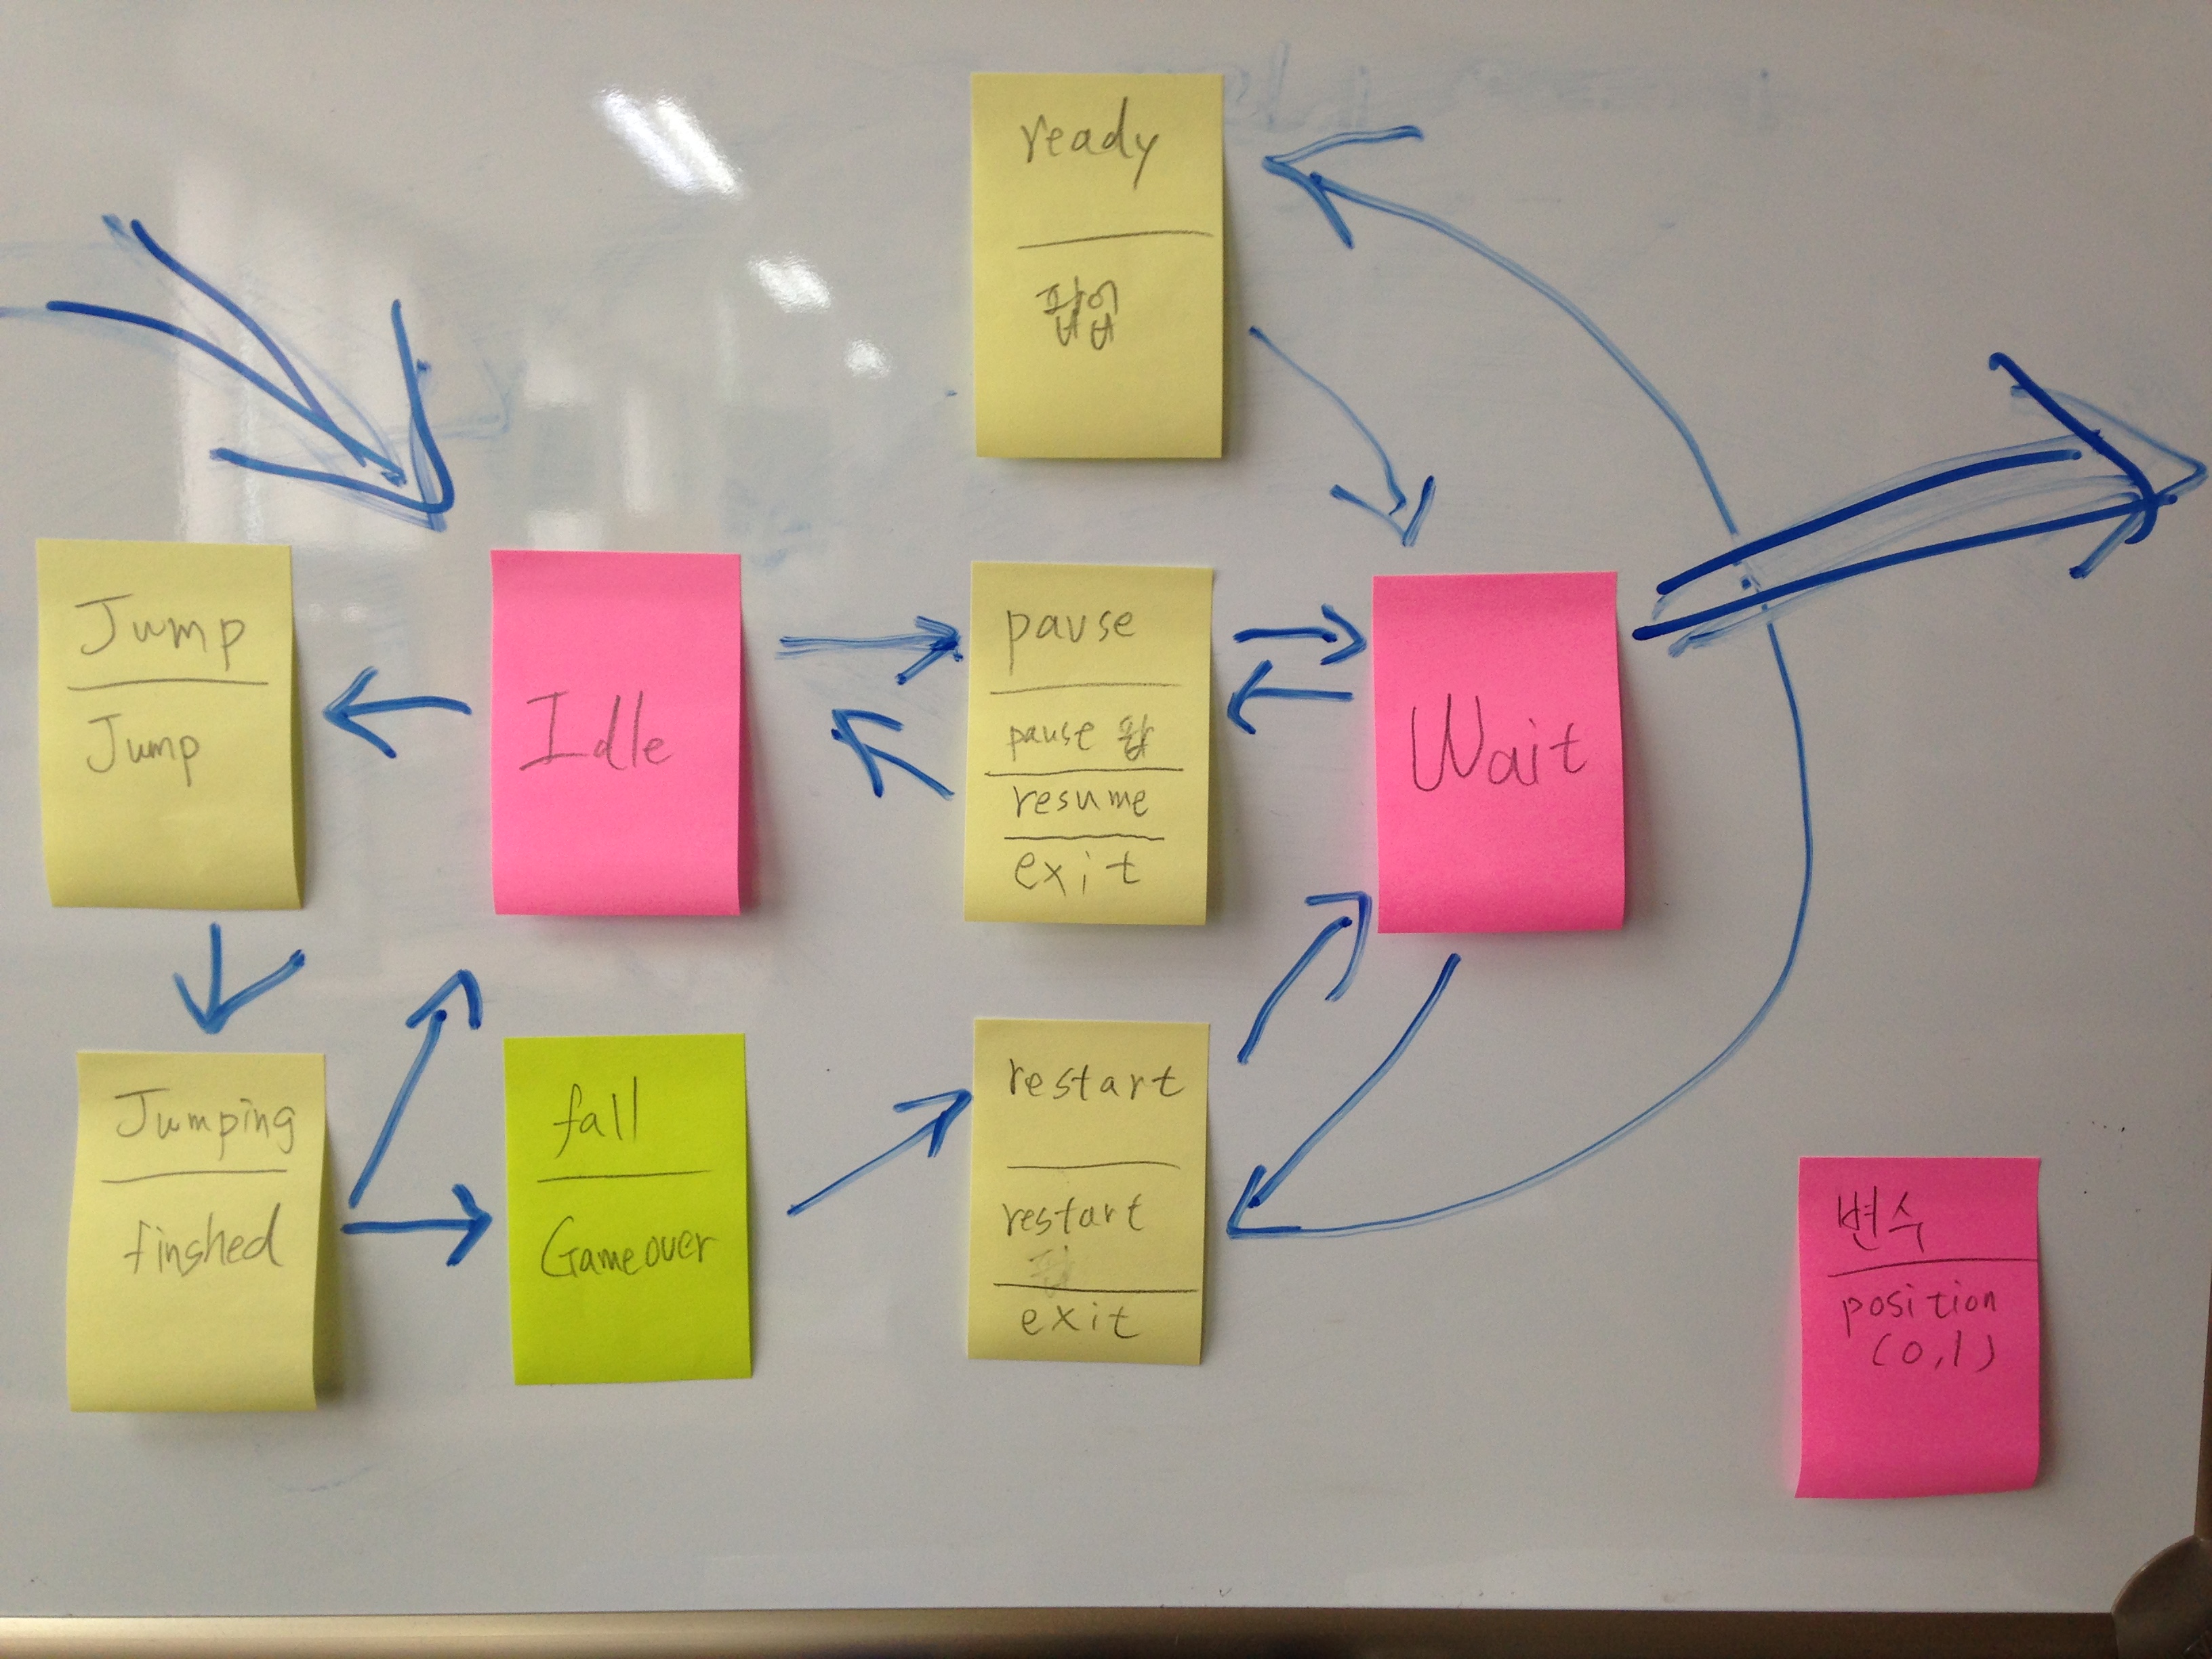 ready
팝업
Jump
Jump
Idle
pause
pause 팝
resume
exit
Wait
Jumping
finshed
fall
Gameover
restart
restart
팝
exit
변수
position
(0,1)